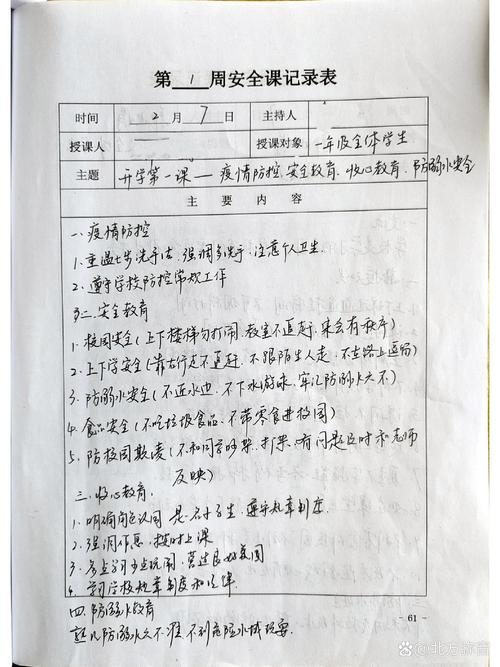 第 1 周安全课记录表
时间 2 月 7 日 主持人
授课人 授课对象 一年级全体学生
主题 开学第一课——疫情防控、安全教育、收心教育、防溺水安全
主 要 内 容
一.疫情防控
1.重温七步洗手法,强调多洗手,注意个人卫生.
2.遵守学校防控常规工作
二.安全教育
1.校园安全(上下楼梯勿打闹,教室不追赶,集会有秩序)
2.上下学安全(靠右行走不追赶,不跟陌生人走,不在路上逗留)
3.防溺水安全(不近水边,不下水游泳,牢记防溺水六不)
4.食品安全(不吃垃圾食品,不带零食进校园)
5.防校园欺凌(不和同学吵架,打架,有问题及时求老师
反映)
三.收心教育.
1.明确 是名小学生,遵守规章制度
2.强调作息,按时上课
3. 学习少点玩闹,营造良好氛围
4.学习学校规章制度和
四.防溺水教育
防溺水六不准,不到危险水域玩耍.
- 61 -
北方教育